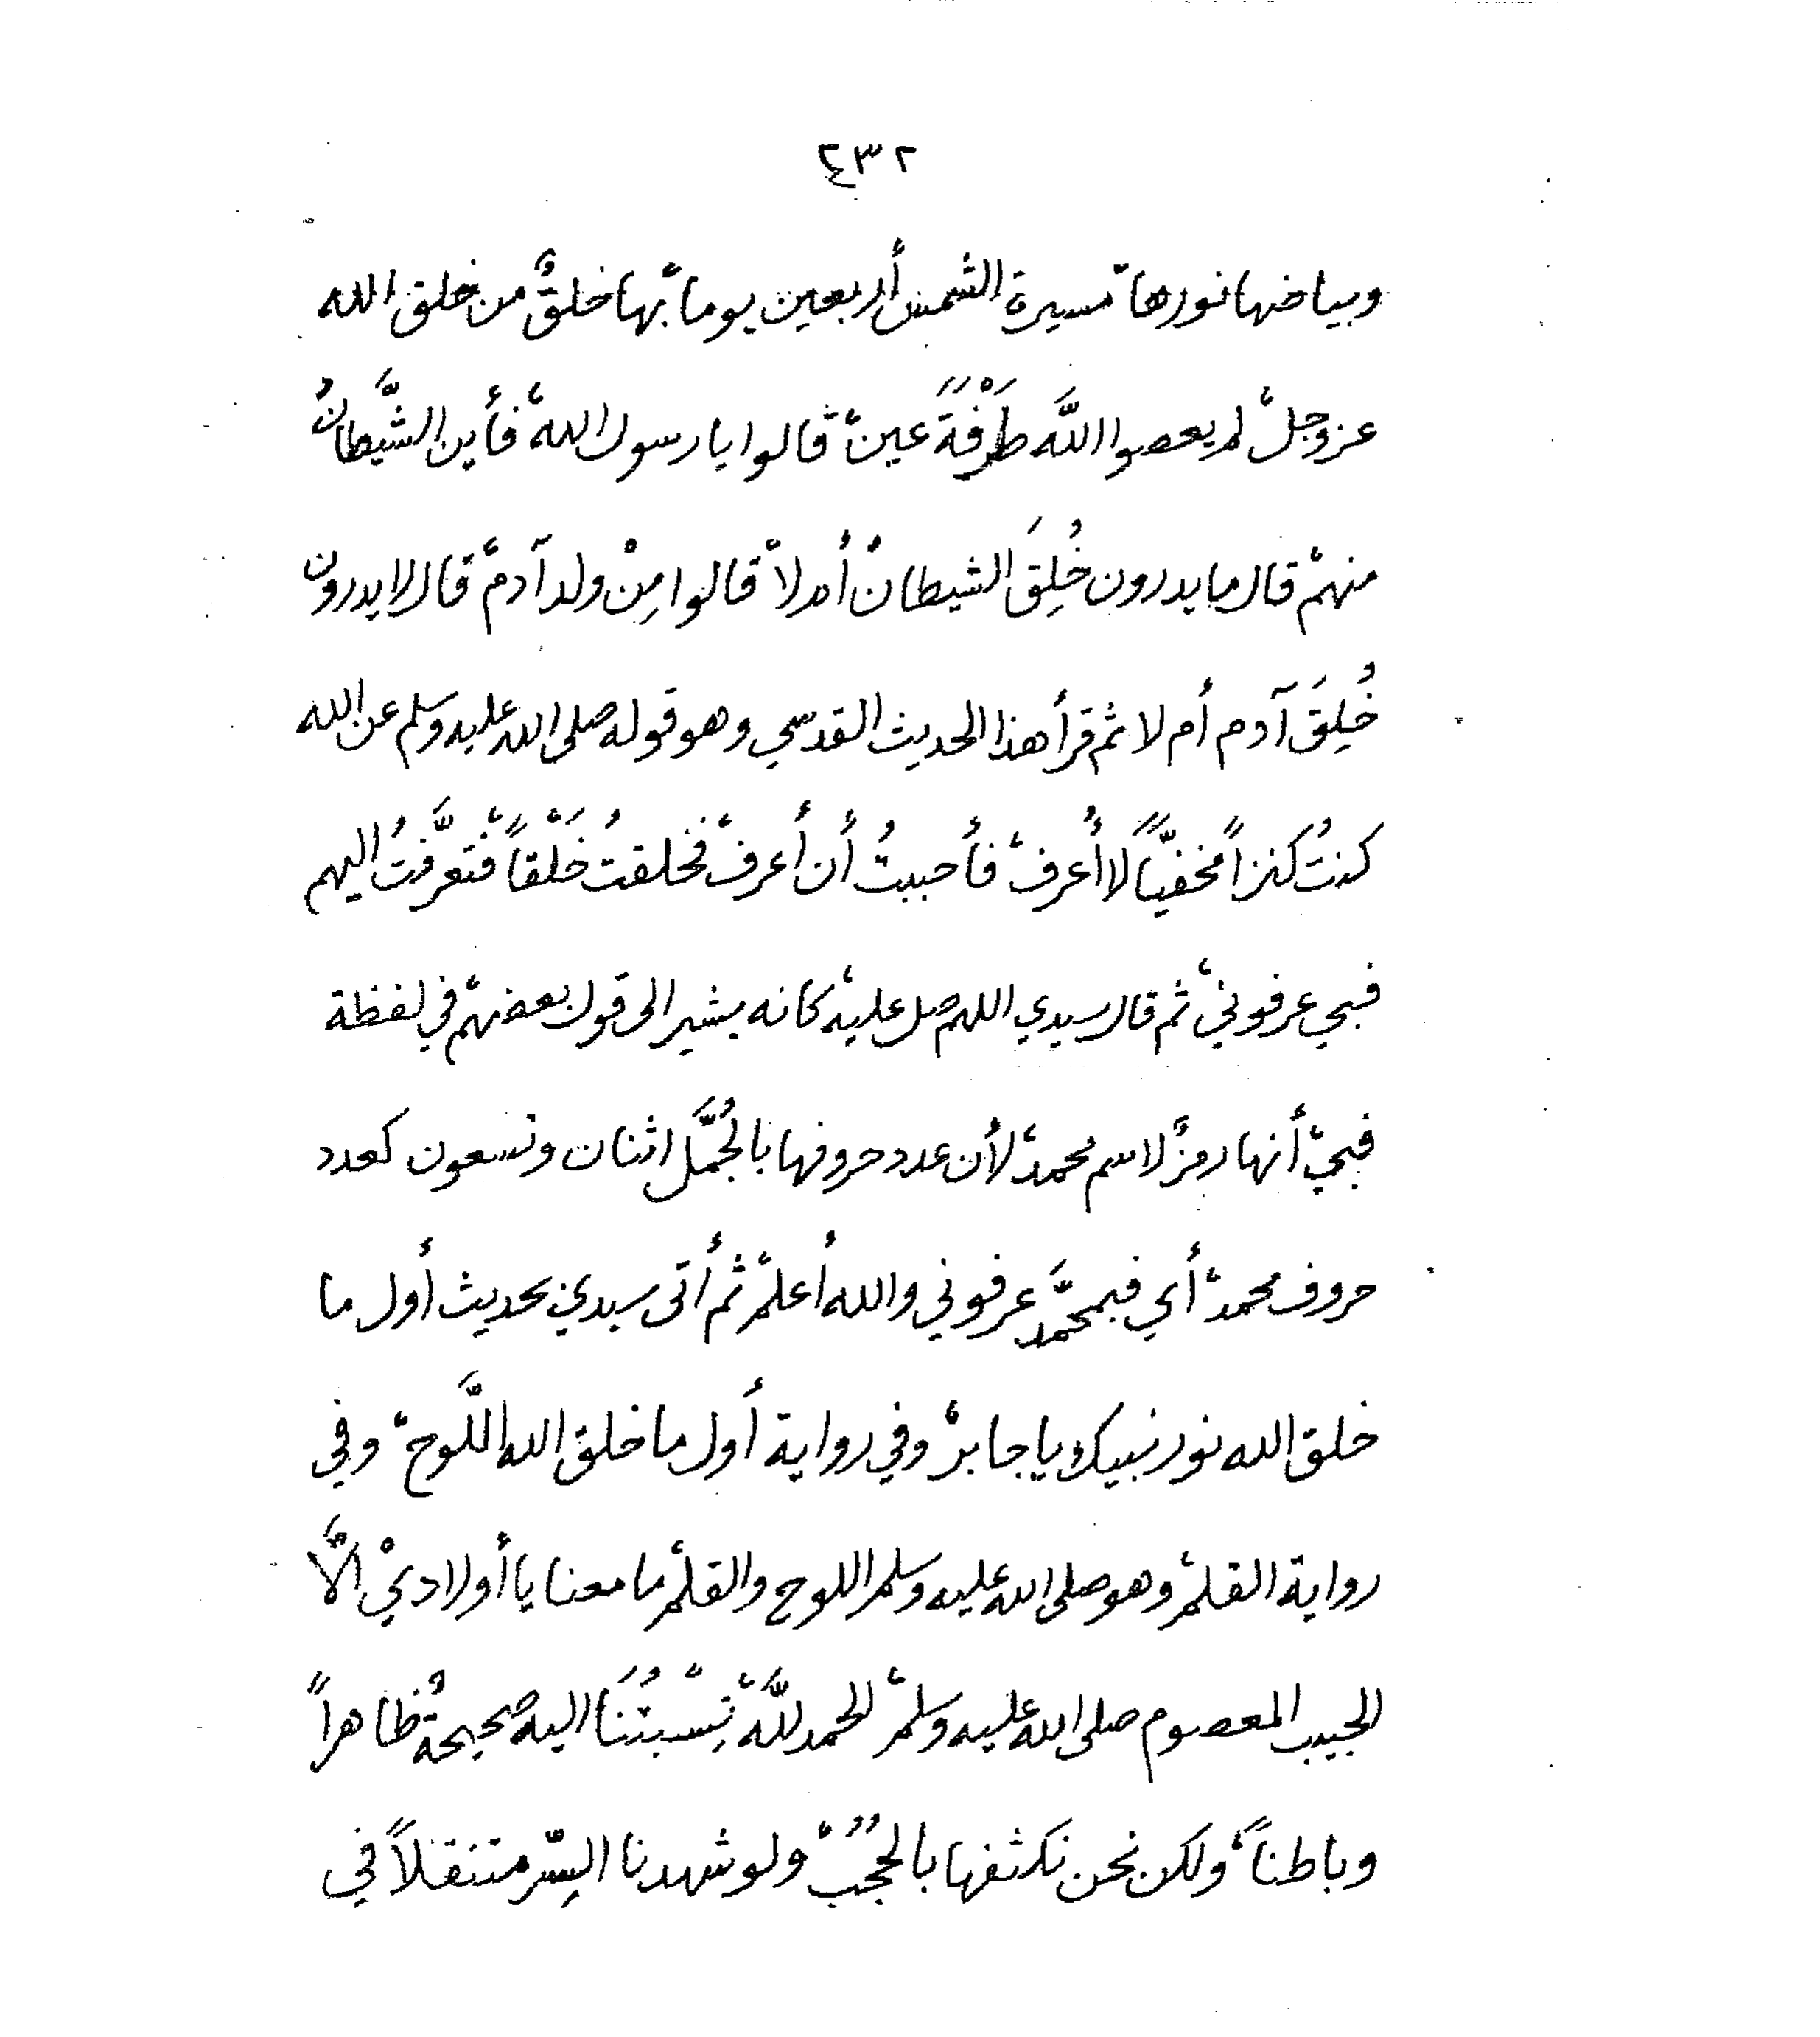 ٢٣٤
وبياضها نورها، مسيرة الشمس أربعين يوما، بها خلقٌ من خلق الله
عز وجل، لم يعصوا اللَّه طَرْفَةً عين، قالوا يا رسول الله، فأين الشَّيطانُ
منهم، قال ما يدرون خُلِقَ الشيطانُ أم لا، قالوا مِنْ ولد آدم، قال لا يدرون
خُلِقَ آدم أم لا ثم قرأ هذا الحديث القدسي وهو قوله صلى الله عليه وسلم عن الله
كنتُ كنزاً مخفيّاً لا أُعرف، فأحببتُ أن أُعرف، فخلقتُ خَلْقاً، فتعرَّفتُ اليهم
فبي عرفوني، ثم قال سيدي اللهم صل عليه، كانه يشير الى قول بعضهم، في لفظة
فبي، أنها رمزٌ لاسم محمد، لأن عدد حروفها بالجُمَّل اثنان وتسعون كعدد
حروف محمد، أي فبمحمَّد عرفوني والله أعلم، ثم أتى سيدي بحديث أول ما
خلق الله نور نبيك يا جابر، وفي رواية أول ما خلق الله اللَّوح، وفي
رواية القلم، وهو صلى الله عليه وسلم اللوح والقلم، ما معنا يا أولادي، الاَّ
الحبيب المعصوم صلى الله عليه وسلم، الحمد للَّه، نِسْبتُنَا اليه صحيحةٌ ظاهراً
وباطناً، ولكن نحن نكثفها بالحجُبُ، ولو شهدنا السِّر متنقلاً في